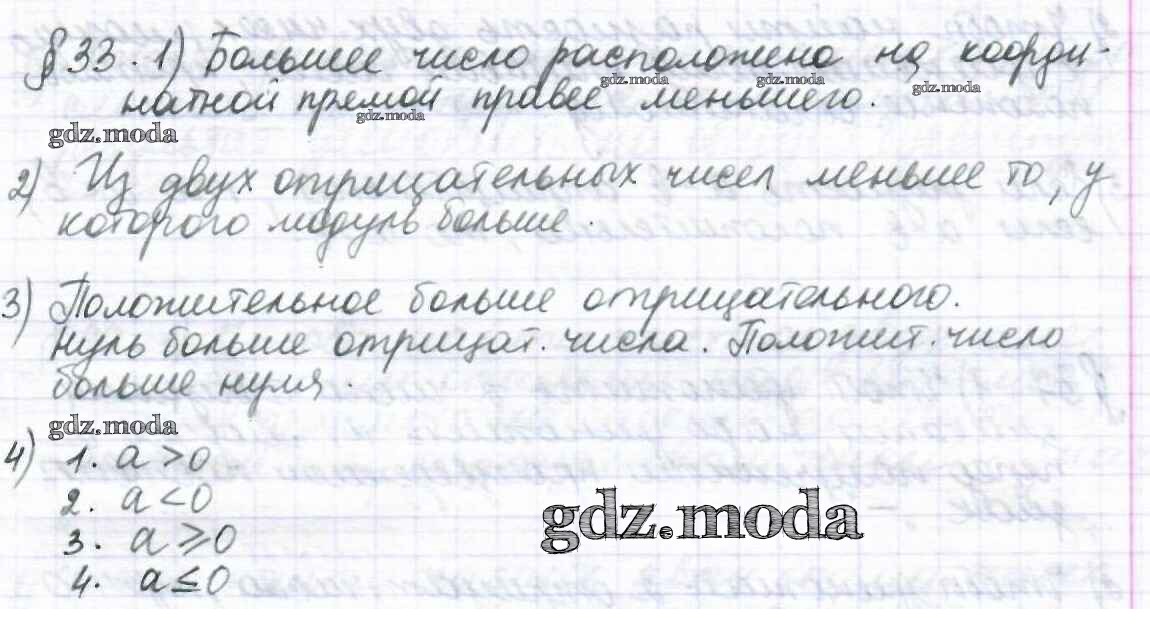 § 33. 1) Большее число расположено на коорди-
натной прямой правее меньшего.
gdz.moda gdz.moda gdz.moda
gdz.moda
gdz.moda
2) Из двух отрицательных чисел меньше то, у
которого модуль больше.
3) Положительное больше отрицательного.
Нуль больше отрицат. числа. Положит. число
больше нуля.
gdz.moda
4) 1. a > 0
2. a < 0
3. a ≥ 0
gdz.moda
4. a ≤ 0